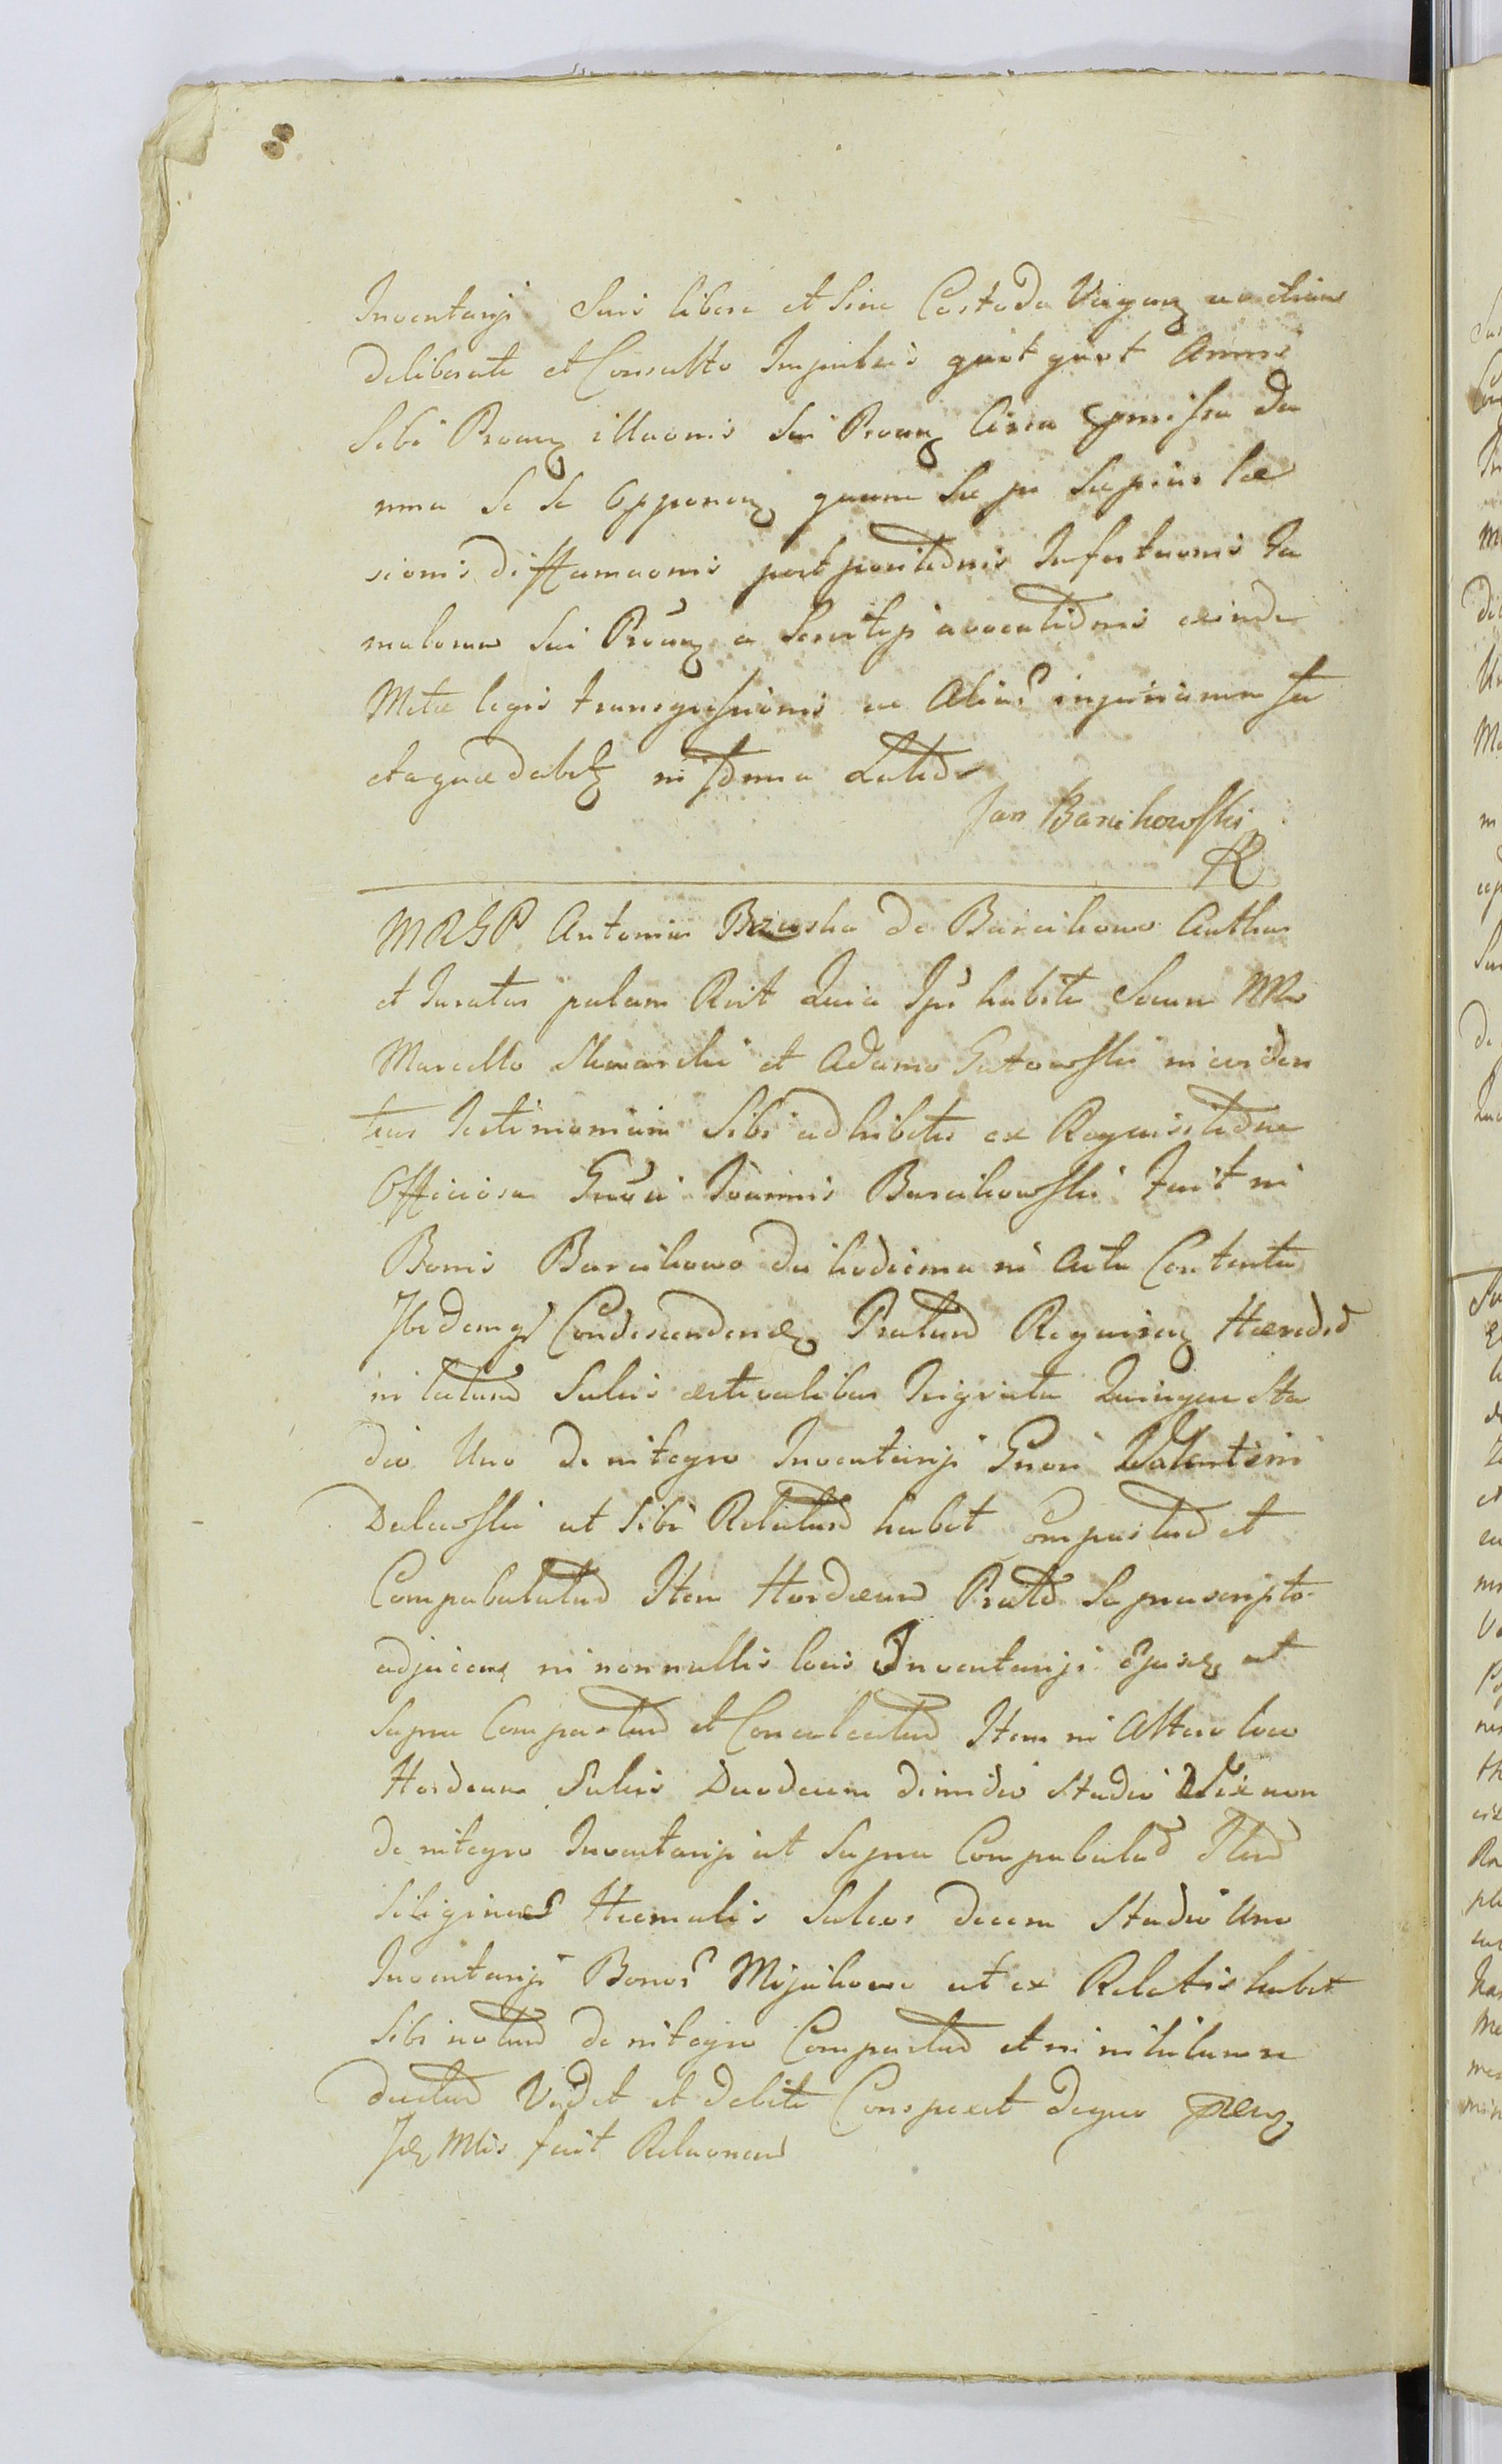 Inventarij Suis libere et Sine Custode Vagan ac etiam
deliberate et Consulto Impulsis quot quot Annis
Sibi Proten illaonis Sui Proten Circa pmissa da
mna Se Se Opponen quam Sae pe Saepius lae
sionis diffamaonis post positionis Infestaonis Fa
mulorum Sui Proten a Servitijs avocationis exinde
Metae legis transgressionis ac Alias injuriarum fa
ctaque debet in forma Latiori
Jan Barcikowski
R
MRGP Antonius Brzuska de Barcikowo Authen
et Juratus palam Rcit Quia Ipse habitis Secum NN
Marcello Skwarski et Adamo Gutowski in eviden
tius Testimonium Sibi adhibitis ex Requisitione
Officiosa Gnosi Joannis Barcikowski Fuit in
Bonis Barcikowo die hodierna in Actu Contenta
Ibidemq Condescenden Pratum Requiren Haeredit
in latum Sulcis aestivalibus Triginta Quinque Sta
dio Uno de integro Inventarij Gnosi Valentini
Dalewski ut Sibi Relatum habet Compastum et
Compabulatum Item Hordeum Prato Suprascripto
adjacens in nonnullis locis Inventarijs Ejusd ut
Supra Compastum et Conculcatum Item in Altero loco
Hordeum Sulcis Duodecim dimidio Stadio
de integro Inventarijs ut Supra Compabulatum Item
Siliginem Hiemalis Sulcos decem Stadio Uno
Inventarijs Bonos Mijakowo ut ex Relatis habet
Sibi notum de integro Compastum et in nihilum re
ductum Vidit et debite Conspexit de quo
Id Mlis fecit Relaonem